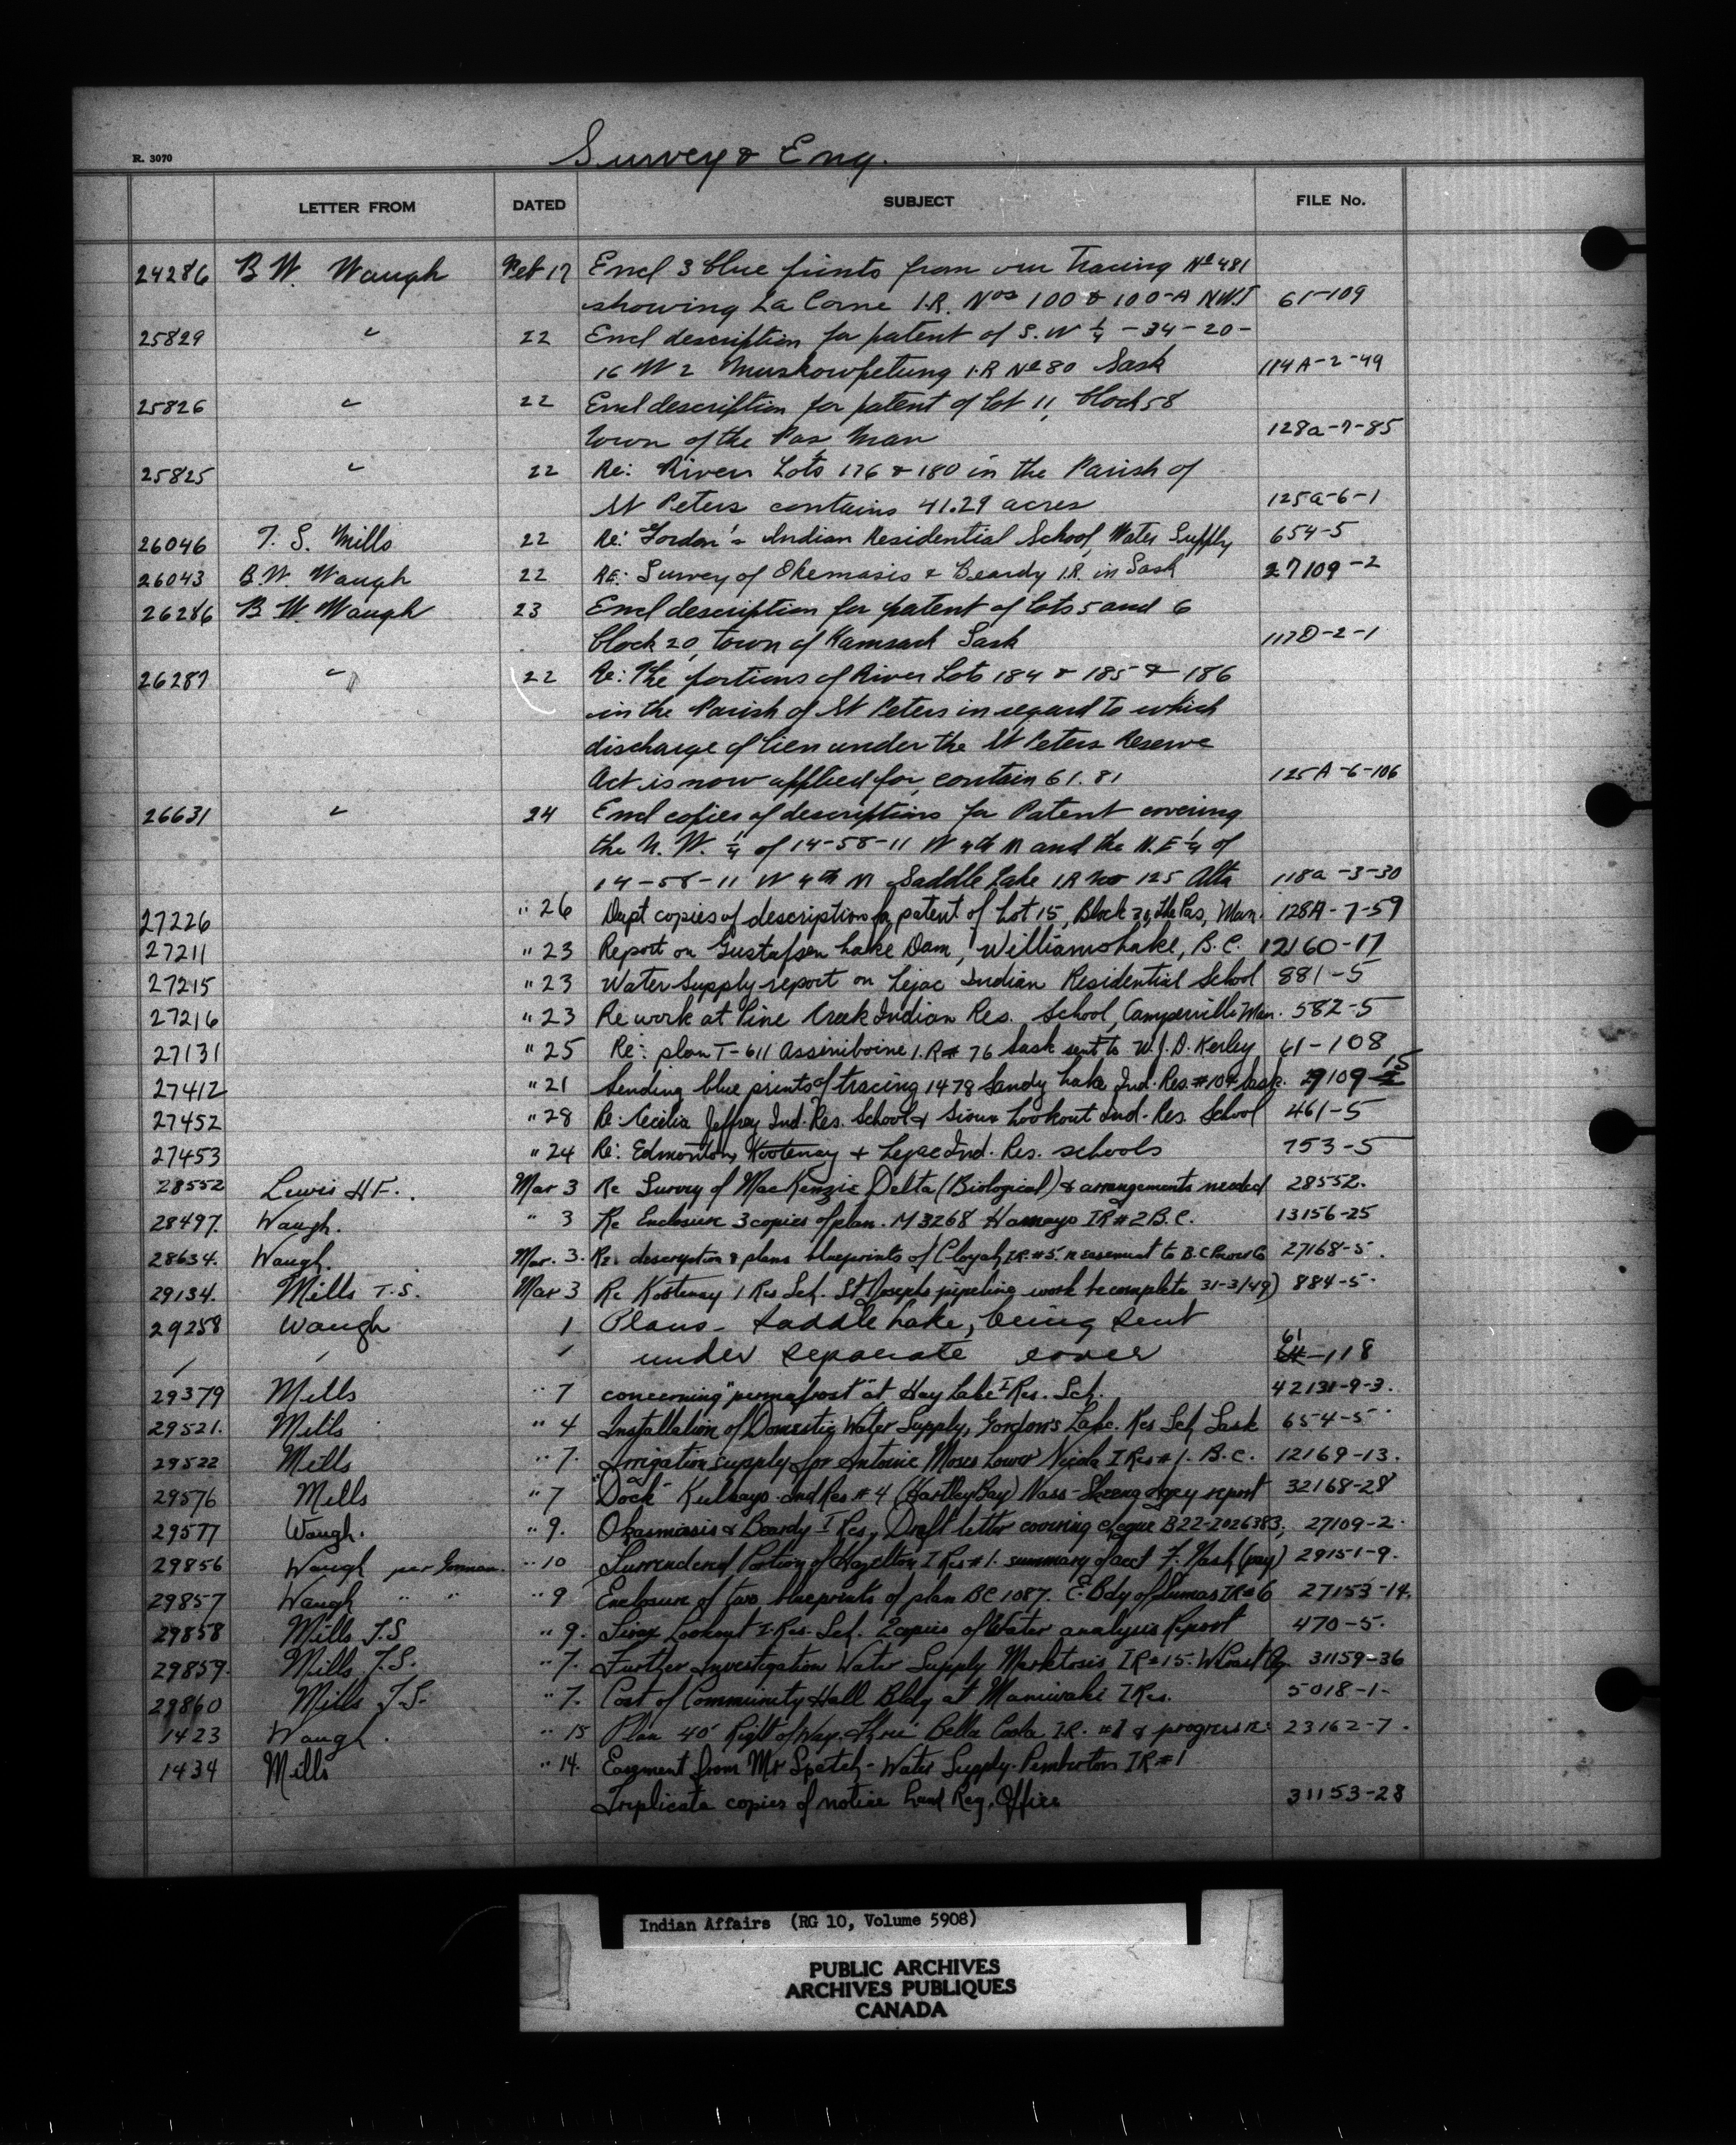 R. 3070
Survey & Eng.
LETTER FROM DATED SUBJECT FILE No.
24286 B W. Waugh Feb 17 Encl 3 blue prints from our Tracing No 481
showing La Corne I.R. Nos 100 & 100-A N.W.T 61-109
25829 " 22 Encl description for patent of S.W ¼ -34-20-
16 W 2 Muskowpetung I.R No 80 Sask 114A-2-49
25826 " 22 Encl description for patent of Lot 11, block 58
town of the Pas Man 128a-7-85
25825 " 22 Re: River Lots 176 & 180 in the Parish of
St Peters contains 41.29 acres 125a-6-1
26046 T. S. Mills 22 Re: Gordon's Indian Residential School, Water Supply 654-5
26043 B.W. Waugh 22 RE: Survey of Okemasis & Beardy I.R. in Sask 27109-2
26286 B W. Waugh 23 Encl description for patent of lots 5 and 6
block 20, town of Kamsack Sask 117D-2-1
26287 " 22 Re: The portions of River Lots 184 & 185 & 186
in the Parish of St Peters in regard to which
discharge of lien under the St Peters Reserve
Act is now applied for, contain 61.81 125A-6-106
26631 " 24 Encl copies of descriptions for Patent covering
the N. W. ¼ of 14-58-11 W 4th M and the N.E ¼ of
14-58-11 W 4th M Saddle Lake I.R no 125 Alta 118a-3-30
27226 " 26 Dupt copies of description for patent of Lot 15, Block 39, the Pas, Man. 128A-7-59
27211 " 23 Report on Gustafsen Lake Dam, Williams Lake, B.C. 12160-17
27215 " 23 Water Supply report on Lejac Indian Residential School 881-5
27216 " 23 Re work at Pine Creek Indian Res. School, Camperville Man. 582-5
27131 " 25 Re: plan T-611 Assiniboine I.R # 76 Sask sent to W.J.D. Kerley 61-108
27412 " 21 Sending blue prints of tracing 1478 Sandy Lake Ind. Res. #104 Sask. 29109-15
27452 " 28 Re: Cecilia Jeffrey Ind. Res. School & Sioux Lookout Ind. Res. School 461-5
27453 " 24 Re: Edmonton, Kootenay & Lejac Ind. Res. schools 753-5
28552 Lewis H F. Mar 3 Re Survey of MacKenzie Delta (Biological) & arrangements needed 28552.
28497. Waugh. " 3 Re Enclosure 3 copies of plan. M 3268 Hamayo IR #2 B.C. 13156-25
28634. Waugh. Mar. 3. Re: description & plans blueprints of Cloyah, I.R. #5. re easement to B.C Power Co 27168-5.
29134. Mills T.S. Mar 3 Re Kootenay I Res Sch. St Josephs pipeline work to complete 31-3/49) 884-5.
29258 Waugh 1 Plans - Saddle Lake, being sent
under separate cover 61-118
29379 Mills " 7 concerning "permafrost" at Hay Lake I Res. Sch. 42131-9-3.
29521. Mills " 4 Installation of Domestic Water Supply, Gordon's Lake. Res Sch, Sask 654-5
29522 Mills " 7. Irrigation supply for Antoine Moses Lower Nicola I Res #1. B.C. 12169-13.
29576 Mills " 7 "Dock" Kulkayo Ind Res #4 (Hartley Bay) Nass-Skeena Agcy report 32168-28
29577 Waugh. " 9. Okamasis & Beardy I Res, Draft letter covering cheque B22-2026383, 27109-2.
29856 Waugh per Gorman. " 10 Surrendered Portion of Hazelton I Res #1. summary of acct F. Nash (pay) 29151-9.
29857 Waugh " " " 9 Enclosure of two blueprints of plan BC 1087. E. Bdy of Sumas IR #6 27153-14.
29858 Mills T.S " 9. Sioux Lookout I. Res. Sch. 2 copies of Water analysis Report 470-5.
29859. Mills T.S. " 7. Further Investigation Water Supply Marktosis IR #15. W Coast Agy. 31159-36
29860 Mills T.S. " 7. Cost of Community Hall Bldg at Maniwaki I Res. 5018-1-
1423 Waugh. " 15 Plan 40' Right of Way thru' Bella Coola I.R. #1 & progress re: 23162-7.
1434 Mills " 14. Easement from Mr Spetch - Water Supply. Pemberton IR #1
Triplicate copies of notice Land Reg. Office 31153-28
Indian Affairs (RG 10, Volume 5908)
PUBLIC ARCHIVES
ARCHIVES PUBLIQUES
CANADA